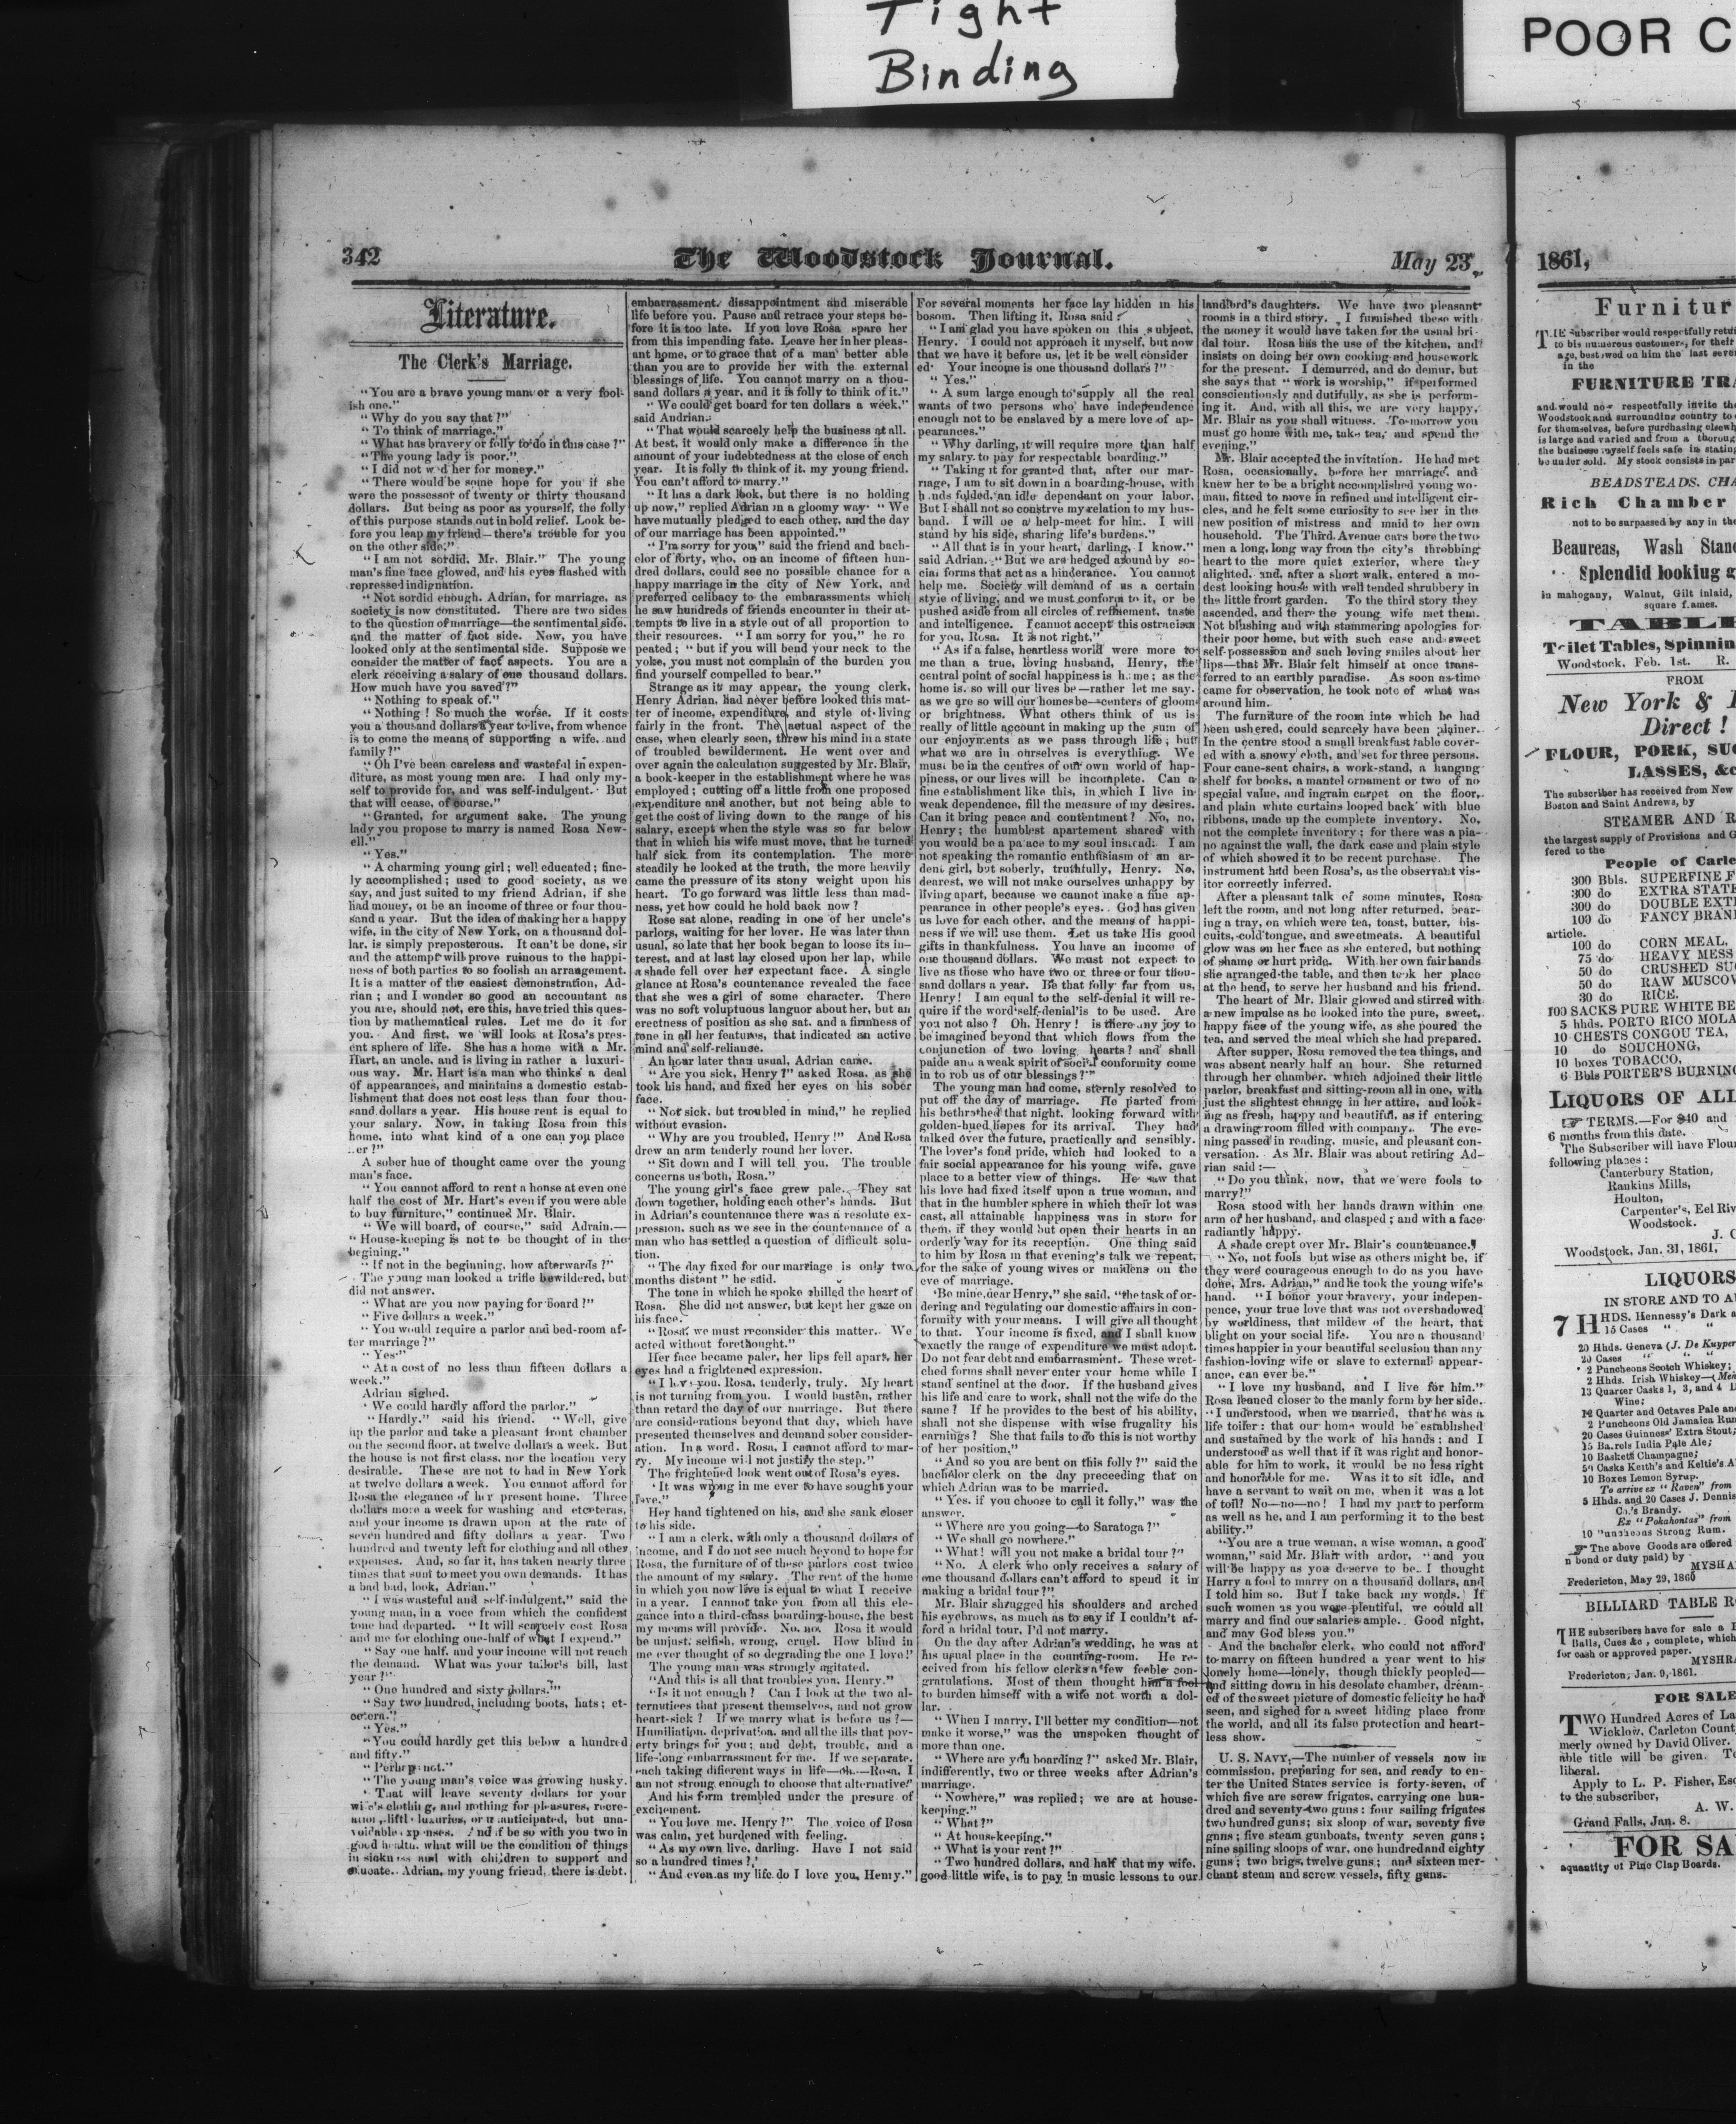 Tight
Binding
POOR C
342
The Woodstock Journal.
May 23,
Literature.
The Clerk's Marriage.
"You are a brave young man or a very fool-
ish one."
"Why do you say that?"
"To think of marriage."
"What has bravery or folly to do in this case?"
"The young lady is poor."
"I did not wed her for money."
"There would be some hope for you if she
were the possessor of twenty or thirty thousand
dollars. But being as poor as yourself, the folly
of this purpose stands out in bold relief. Look be-
fore you leap my friend—there's trouble for you
on the other side."
"I am not sordid, Mr. Blair." The young
man's fine face glowed, and his eyes flashed with
repressed indignation.
"Not sordid enough, Adrian, for marriage, as
society is now constituted. There are two sides
to the question of marriage—the sentimental side,
and the matter of fact side. Now, you have
looked only at the sentimental side. Suppose we
consider the matter of fact aspects. You are a
clerk receiving a salary of one thousand dollars.
How much have you saved?"
"Nothing to speak of."
"Nothing! So much the worse. If it costs
you a thousand dollars a year to live, from whence
is to come the means of supporting a wife, and
family?"
"Oh I've been careless and wasteful in expen-
diture, as most young men are. I had only my-
self to provide for, and was self-indulgent. But
that will cease, of course."
"Granted, for argument sake. The young
lady you propose to marry is named Rosa New-
ell."
"Yes."
"A charming young girl; well educated; fine-
ly accomplished; used to good society, as we
say, and just suited to my friend Adrian, if she
had money, or be an income of three or four thou-
sand a year. But the idea of making her a happy
wife, in the city of New York, on a thousand dol-
lar, is simply preposterous. It can't be done, sir
and the attempt will prove ruinous to the happi-
ness of both parties to so foolish an arrangement.
It is a matter of the easiest demonstration, Ad-
rian; and I wonder so good an accountant as
you are, should not, ere this, have tried this ques-
tion by mathematical rules. Let me do it for
you. And first, we will look at Rosa's pres-
ent sphere of life. She has a home with a Mr.
Hart, an uncle, and is living in rather a luxuri-
ous way. Mr. Hart is a man who thinks a deal
of appearances, and maintains a domestic estab-
lishment that does not cost less than four thou-
sand dollars a year. His house rent is equal to
your salary. Now, in taking Rosa from this
home, into what kind of a one can you place
er?"
A sober hue of thought came over the young
man's face.
"You cannot afford to rent a house at even one
half the cost of Mr. Hart's even if you were able
to buy furniture," continued Mr. Blair.
"We will board, of course," said Adrain.—
"House-keeping is not to be thought of in the
begining."
"If not in the beginning, how afterwards?"
The young man looked a trifle bewildered, but
did not answer.
"What are you now paying for board?"
"Five dollars a week."
"You would require a parlor and bed-room af-
ter marriage?"
"Yes."
"At a cost of no less than fifteen dollars a
week."
Adrian sighed.
'We could hardly afford the parlor."
"Hardly," said his friend. "Well, give
up the parlor and take a pleasant front chamber
on the second floor, at twelve dollars a week. But
the house is not first class, nor the location very
desirable. These are not to had in New York
at twelve dollars a week. You cannot afford for
Rosa the elegance of her present home. Three
dollars more a week for washing and etceteras,
and your income is drawn upon at the rate of
seven hundred and fifty dollars a year. Two
hundred and twenty left for clothing and all other
expenses. And, so far it, has taken nearly three
times that sum to meet you own demands. It has
a bad bad, look, Adrian."
"I was wasteful and self-indulgent," said the
young man, in a voce from which the confident
tone had departed. "It will scarcely cost Rosa
and me for clothing one-half of what I expend."
"Say one half, and your income will not reach
the demand. What was your tailor's bill, last
year?"
"One hundred and sixty dollars."
"Say two hundred, including boots, hats; et-
cetera."
"Yes."
"You could hardly get this below a hundred
and fifty."
"Perhaps not."
"The young man's voice was growing husky.
'That will leave seventy dollars for your
wife's clothing, and nothing for pleasures, recre-
ation, little luxuries, or unanticipated, but una-
voidable expenses. And if be so with you two in
good health, what will be the condition of things
in sickness and with children to support and
educate. Adrian, my young friend, there is debt,
embarrassment, dissappointment and miserable
life before you. Pause and retrace your steps be-
fore it is too late. If you love Rosa spare her
from this impending fate. Leave her in her pleas-
ant home, or to grace that of a man better able
than you are to provide her with the external
blessings of life. You cannot marry on a thou-
sand dollars a year, and it is folly to think of it."
"We could get board for ten dollars a week,"
said Andrian.
"That would scarcely help the business at all.
At best, it would only make a difference in the
amount of your indebtedness at the close of each
year. It is folly to think of it, my young friend.
You can't afford to marry."
"It has a dark look, but there is no holding
up now," replied Adrian in a gloomy way. "We
have mutually pledged to each other, and the day
of our marriage has been appointed."
"I'm sorry for you," said the friend and bach-
elor of forty, who, on an income of fifteen hun-
dred dollars, could see no possible chance for a
happy marriage in the city of New York, and
preferred celibacy to the embarassments which
he saw hundreds of friends encounter in their at-
tempts to live in a style out of all proportion to
their resources. "I am sorry for you," he re
peated; "but if you will bend your neck to the
yoke, you must not complain of the burden you
find yourself compelled to bear."
Strange as it may appear, the young clerk,
Henry Adrian, had never before looked this mat-
ter of income, expenditure, and style of living
fairly in the front. The actual aspect of the
case, when clearly seen, threw his mind in a state
of troubled bewilderment. He went over and
over again the calculation suggested by Mr. Blair,
a book-keeper in the establishment where he was
employed; cutting off a little from one proposed
expenditure and another, but not being able to
get the cost of living down to the range of his
salary, except when the style was so far below
that in which his wife must move, that he turned
half sick from its contemplation. The more
steadily he looked at the truth, the more heavily
came the pressure of its stony weight upon his
heart. To go forward was little less than mad-
ness, yet how could he hold back now?
Rose sat alone, reading in one of her uncle's
parlors, waiting for her lover. He was later than
usual, so late that her book began to loose its in-
terest, and at last lay closed upon her lap, while
a shade fell over her expectant face. A single
glance at Rosa's countenance revealed the face
that she wes a girl of some character. There
was no soft voluptuous languor about her, but an
erectness of position as she sat, and a firmness of
tone in all her features, that indicated an active
mind and self-reliance.
An hour later than usual, Adrian came.
"Are you sick, Henry?" asked Rosa, as she
took his hand, and fixed her eyes on his sober
face.
"Not sick, but troubled in mind," he replied
without evasion.
"Why are you troubled, Henry!" And Rosa
drew an arm tenderly round her lover.
"Sit down and I will tell you. The trouble
concerns us both, Rosa."
The young girl's face grew pale. They sat
down together, holding each other's hands. But
in Adrian's countenance there was a resolute ex-
pression, such as we see in the countenance of a
man who has settled a question of difficult solu-
tion.
"The day fixed for our marriage is only two
months distant" he said.
The tone in which he spoke chilled the heart of
Rosa. She did not answer, but kept her gaze on
his face.
"Rosa, we must reconsider this matter. We
acted without forethought."
Her face became paler, her lips fell apart, her
eyes had a frightened expression.
"I love you, Rosa, tenderly, truly. My heart
is not turning from you. I would hasten, rather
than retard the day of our marriage. But there
are considerations beyond that day, which have
presented themselves and demand sober consider-
ation. In a word, Rosa, I cannot afford to mar-
ry. My income will not justify the step."
The frightened look went out of Rosa's eyes.
'It was wrong in me ever to have sought your
love."
Her hand tightened on his, and she sank closer
to his side.
"I am a clerk, with only a thousand dollars of
income, and I do not see much beyond to hope for
Rosa, the furniture of of these parlors cost twice
the amount of my salary. The rent of the home
in which you now live is equal to what I receive
in a year. I cannot take you from all this ele-
gance into a third-class boarding-house, the best
my means will provide. No, no, Rosa it would
be unjust, selfish, wrong, cruel. How blind in
me ever thought of so degrading the one I love!'
The young man was strongly agitated.
"And this is all that troubles you, Henry."
"Is it not enough? Can I look at the two al-
ternatives that present themselves, and not grow
heart-sick? If we marry what is before us?—
Humiliation, deprivation, and all the ills that pov-
erty brings for you; and debt, trouble, and a
life-long embarrassment for me. If we separate,
each taking different ways in life—oh.—Rosa, I
am not strong enough to choose that alternative!"
And his form trembled under the presure of
excitement.
"You love me, Henry?" The voice of Rosa
was calm, yet burdened with feeling.
"As my own live, darling. Have I not said
so a hundred times?"
"And even as my life do I love you, Henry."
For several moments her face lay hidden in his
bosom. Then lifting it, Rosa said:
"I am glad you have spoken on this subject,
Henry. I could not approach it myself, but now
that we have it before us, let it be well consider
ed. Your income is one thousand dollars?"
"Yes."
"A sum large enough to supply all the real
wants of two persons who have independence
enough not to be enslaved by a mere love of ap-
pearances."
"Why darling, it will require more than half
my salary to pay for respectable boarding."
"Taking it for granted that, after our mar-
riage, I am to sit down in a boarding-house, with
hands folded, an idle dependant on your labor.
But I shall not so constrve my relation to my hus-
band. I will be a help-meet for him. I will
stand by his side, sharing life's burdens."
"All that is in your heart, darling, I know."
said Adrian. "But we are hedged around by so-
cial forms that act as a hinderance. You cannot
help me. Society will demand of us a certain
style of living, and we must conform to it, or be
pushed aside from all circles of refinement, taste
and intelligence. I cannot accept this ostracism
for you, Rosa. It is not right."
"As if a false, heartless world were more to
me than a true, loving husband, Henry, the
central point of social happiness is home; as the
home is, so will our lives be—rather let me say,
as we are so will our homes be—centers of gloom
or brightness. What others think of us is
really of little account in making up the sum of
our enjoyments as we pass through life; but
what we are in ourselves is everything. We
must be in the centres of our own world of hap-
piness, or our lives will be incomplete. Can a
fine establishment like this, in which I live in
weak dependence, fill the measure of my desires.
Can it bring peace and contentment? No, no,
Henry; the humblest apartement shared with
you would be a palace to my soul instead. I am
not speaking the romantic enthusiasm of an ar-
dent girl, but soberly, truthfully, Henry. No,
dearest, we will not make ourselves unhappy by
living apart, because we cannot make a fine ap-
pearance in other people's eyes. God has given
us love for each other, and the means of happi-
ness if we will use them. Let us take His good
gifts in thankfulness. You have an income of
one thousand dollars. We must not expect to
live as those who have two or three or four thou-
sand dollars a year. Be that folly far from us,
Henry! I am equal to the self-denial it will re-
quire if the word self-denial is to be used. Are
you not also? Oh, Henry! is there any joy to
be imagined beyond that which flows from the
conjunction of two loving hearts? and shall
paide and a weak spirit of social conformity come
in to rob us of our blessings?"
The young man had come, sternly resolved to
put off the day of marriage. He parted from
his bethrothed that night, looking forward with
golden-hued hopes for its arrival. They had
talked over the future, practically and sensibly.
The lover's fond pride, which had looked to a
fair social appearance for his young wife, gave
place to a better view of things. He saw that
his love had fixed itself upon a true woman, and
that in the humbler sphere in which their lot was
cast, all attainable happiness was in store for
them, if they would but open their hearts in an
orderly way for its reception. One thing said
to him by Rosa in that evening's talk we repeat,
for the sake of young wives or maidens on the
eve of marriage.
'Be mine, dear Henry," she said, "the task of or-
dering and regulating our domestic affairs in con-
formity with your means. I will give all thought
to that. Your income is fixed, and I shall know
exactly the range of expenditure we must adopt.
Do not fear debt and embarrasment. These wret-
ched forms shall never enter your home while I
stand sentinel at the door. If the husband gives
his life and care to work, shall not the wife do the
same? If he provides to the best of his ability,
shall not she dispense with wise frugality his
earnings? She that fails to do this is not worthy
of her position."
"And so you are bent on this folly?" said the
bachalor clerk on the day preceeding that on
which Adrian was to be married.
"Yes, if you choose to call it folly," was the
answer.
"Where are you going—to Saratoga?"
"We shall go nowhere."
"What! will you not make a bridal tour?"
"No. A clerk who only receives a salary of
one thousand dollars can't afford to spend it in
making a bridal tour?"
Mr. Blair shrugged his shoulders and arched
his eyebrows, as much as to say if I couldn't af-
ford a bridal tour, I'd not marry.
On the day after Adrian's wedding, he was at
his usual place in the counting-room. He re-
ceived from his fellow clerks a few feeble con-
gratulations. Most of them thought him a fool
to burden himself with a wife not worth a dol-
lar.
"When I marry, I'll better my condition—not
make it worse," was the unspoken thought of
more than one.
"Where are you boarding?" asked Mr. Blair,
indifferently, two or three weeks after Adrian's
marriage.
"Nowhere," was replied; we are at house-
keeping."
"What?"
"At house-keeping."
"What is your rent?"
"Two hundred dollars, and half that my wife,
good little wife, is to pay in music lessons to our
landlord's daughters. We have two pleasant
rooms in a third story. I furnished these with
the money it would have taken for the usual bri-
dal tour. Rosa has the use of the kitchen, and
insists on doing her own cooking and housework
for the present. I demurred, and do demur, but
she says that "work is worship," if performed
conscientiously and dutifully, as she is perform-
ing it. And, with all this, we are very happy,
Mr. Blair as you shall witness. To-morrow you
must go home with me, take tea, and spend the
evening."
Mr. Blair accepted the invitation. He had met
Rosa, occasionally, before her marriage, and
knew her to be a bright accomplished young wo-
man, fitted to move in refined and intelligent cir-
cles, and he felt some curiosity to see her in the
new position of mistress and maid to her own
household. The Third Avenue cars bore the two
men a long, long way from the city's throbbing
heart to the more quiet exterior, where they
alighted, and, after a short walk, entered a mo-
dest looking house with well tended shrubbery in
the little front garden. To the third story they
ascended, and there the young wife met them.
Not blushing and with stammering apologies for
their poor home, but with such ease and sweet
self-possession and such loving smiles about her
lips—that Mr. Blair felt himself at once trans-
ferred to an earthly paradise. As soon as time
came for observation, he took note of what was
around him.
The furniture of the room into which he had
been ushered, could scarcely have been plainer.
In the centre stood a small breakfast table cover-
ed with a snowy cloth, and set for three persons.
Four cane-seat chairs, a work-stand, a hanging
shelf for books, a mantel ornament or two of no
special value, and ingrain carpet on the floor,
and plain white curtains looped back with blue
ribbons, made up the complete inventory. No,
not the complete inventory; for there was a pia-
no against the wall, the dark case and plain style
of which showed it to be recent purchase. The
instrument had been Rosa's, as the observant vis-
itor correctly inferred.
After a pleasant talk of some minutes, Rosa
left the room, and not long after returned, bear-
ing a tray, on which were tea, toast, butter, bis-
cuits, cold tongue, and sweetmeats. A beautiful
glow was on her face as she entered, but nothing
of shame or hurt pride. With her own fair hands
she arranged the table, and then took her place
at the head, to serve her husband and his friend.
The heart of Mr. Blair glowed and stirred with
a new impulse as he looked into the pure, sweet,
happy face of the young wife, as she poured the
tea, and served the meal which she had prepared.
After supper, Rosa removed the tea things, and
was absent nearly half an hour. She returned
through her chamber, which adjoined their little
parlor, breakfast and sitting-room all in one, with
just the slightest change in her attire, and look-
ing as fresh, happy and beautiful, as if entering
a drawing-room filled with company. The eve-
ning passed in reading, music, and pleasant con-
versation. As Mr. Blair was about retiring Ad-
rian said:—
"Do you think, now, that we were fools to
marry?"
Rosa stood with her hands drawn within one
arm of her husband, and clasped; and with a face
radiantly happy.
A shade crept over Mr. Blair's countenance.
"No, not fools, but wise as others might be, if
they were courageous enough to do as you have
done, Mrs. Adrian," and he took the young wife's
hand. "I honor your bravery, your indepen-
pence, your true love that was not overshadowed
by worldiness, that mildew of the heart, that
blight on your social life. You are a thousand
times happier in your beautiful seclusion than any
fashion-loving wife or slave to external appear-
ance, can ever be."
"I love my husband, and I live for him."
Rosa leaned closer to the manly form by her side.
"I understood, when we married, that he was a
life toiler: that our home would be established
and sustained by the work of his hands: and I
understood as well that if it was right and honor-
able for him to work, it would be no less right
and honorable for me. Was it to sit idle, and
have a servant to wait on me, when it was a lot
of toil? No—no—no! I had my part to perform
as well as he, and I am performing it to the best
ability."
"You are a true woman, a wise woman, a good
woman," said Mr. Blair with ardor, "and you
will be happy as you deserve to be. I thought
Harry a fool to marry on a thousand dollars, and
I told him so. But I take back my words. If
such women as you were plentiful, we could all
marry and find our salaries ample. Good night,
and may God bless you."
And the bachelor clerk, who could not afford
to marry on fifteen hundred a year went to his
lonely home—lonely, though thickly peopled—
and sitting down in his desolate chamber, dream-
ed of the sweet picture of domestic felicity he had
seen, and sighed for a sweet hiding place from
the world, and all its false protection and heart-
less show.
U. S. NAVY.—The number of vessels now in
commission, preparing for sea, and ready to en-
ter the United States service is forty-seven, of
which five are screw frigates, carrying one hun-
dred and seventy-two guns: four sailing frigates
two hundred guns; six sloop of war, seventy five
guns; five steam gunboats, twenty seven guns;
nine sailing sloops of war, one hundred and eighty
guns; two brigs, twelve guns; and sixteen mer-
chant steam and screw vessels, fifty guns.
1861,
Furnitur
THE Subscriber would respectfully retu
to his numerous customers, for their
age, bestowed on him the last seve
in the
FURNITURE TRA
and would now respectfully invite the
Woodstock and surrounding country to
for themselves, before purchasing elsewh
is large and varied and from a thoroug
the business myself feels safe in stating
be under sold. My stock consists in par
BEADSTEADS, CHA
Rich Chamber
not to be surpassed by any in the
Beaureas, Wash Stan
Splendid lookiug g
in mahogany, Walnut, Gilt inlaid,
square frames.
TABLE
Toilet Tables, Spinnin
Woodstock, Feb. 1st. R.
FROM
New York &
Direct!
FLOUR, PORK, SU
LASSES, &c
The subscriber has received from New
Boston and Saint Andrews, by
STEAMER AND R
the largest supply of Provisions and G
fered to the
People of Carle
300 Bbls. SUPERFINE F
300 do EXTRA STATE
300 do DOUBLE EXT
100 do FANCY BRAN
article.
100 do CORN MEAL,
75 do HEAVY MESS
50 do CRUSHED SU
50 do RAW MUSCOV
30 do RICE.
100 SACKS PURE WHITE BE
5 hhds. PORTO RICO MOLA
10 CHESTS CONGOU TEA,
10 do SOUCHONG,
10 boxes TOBACCO,
6 Bbls PORTER'S BURNING
LIQUORS OF ALL
TERMS.—For $40 and
6 months from this date.
The Subscriber will have Flou
following places:
Canterbury Station,
Rankins Mills,
Houlton,
Carpenter's, Eel Riv
Woodstock.
J. C
Woodstock, Jan. 31, 1861,
LIQUORS
IN STORE AND TO A
7 HHDS. Hennessy's Dark a
15 Cases " "
20 Hhds. Geneva (J. De Kuyper
20 Cases " "
2 Puncheons Scotch Whiskey;
2 Hhds. Irish Whiskey—(
13 Quarter Casks 1, 3, and 4
Wine;
12 Quarter and Octaves Pale an
2 Puncheons Old Jamaica Rum
20 Cases Guinness' Extra Stout;
15 Barrels India Pale Ale;
10 Baskets Champagne;
Casks Keith's and Keltie's A
10 Boxes Lemon Syrup.
To arrive ex "Raven" from
5 Hhds. and 20 Cases J. Dennis
Co.'s Brandy.
Ex "Pokahontas" from
10 Puncheons Strong Rum.
The above Goods are offered
n bond or duty paid) by
MYSHRA
Fredericton, May 29, 1860
BILLIARD TABLE R
THE subscribers have for sale a
Balls, Cues &c, complete, which
for cash or approved paper.
MYSHRA
Fredericton, Jan. 9, 1861.
FOR SALE
TWO Hundred Acres of La
Wicklow, Carleton Count
merly owned by David Oliver.
able title will be given. T
liberal.
Apply to L. P. Fisher, Esq
to the subscriber,
A. W.
Grand Falls, Jan. 8.
FOR SA
aquantity of Pine Clap Boards.